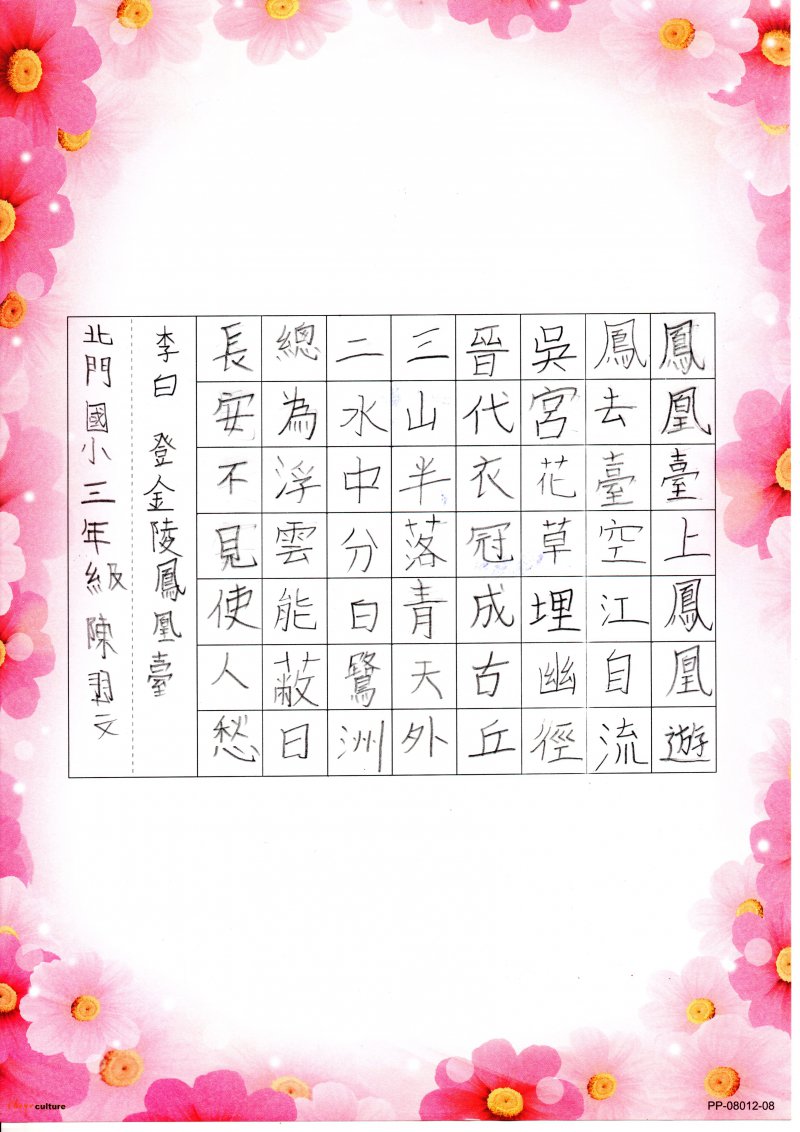 鳳凰臺上鳳凰遊
鳳去臺空江自流
吳宮花草埋幽徑
晉代衣冠成古丘
三山半落青天外
二水中分白鷺洲
總為浮雲能蔽日
長安不見使人愁
李白 登金陵鳳凰臺
北門國小三年級陳羽文
culture
PP-08012-08